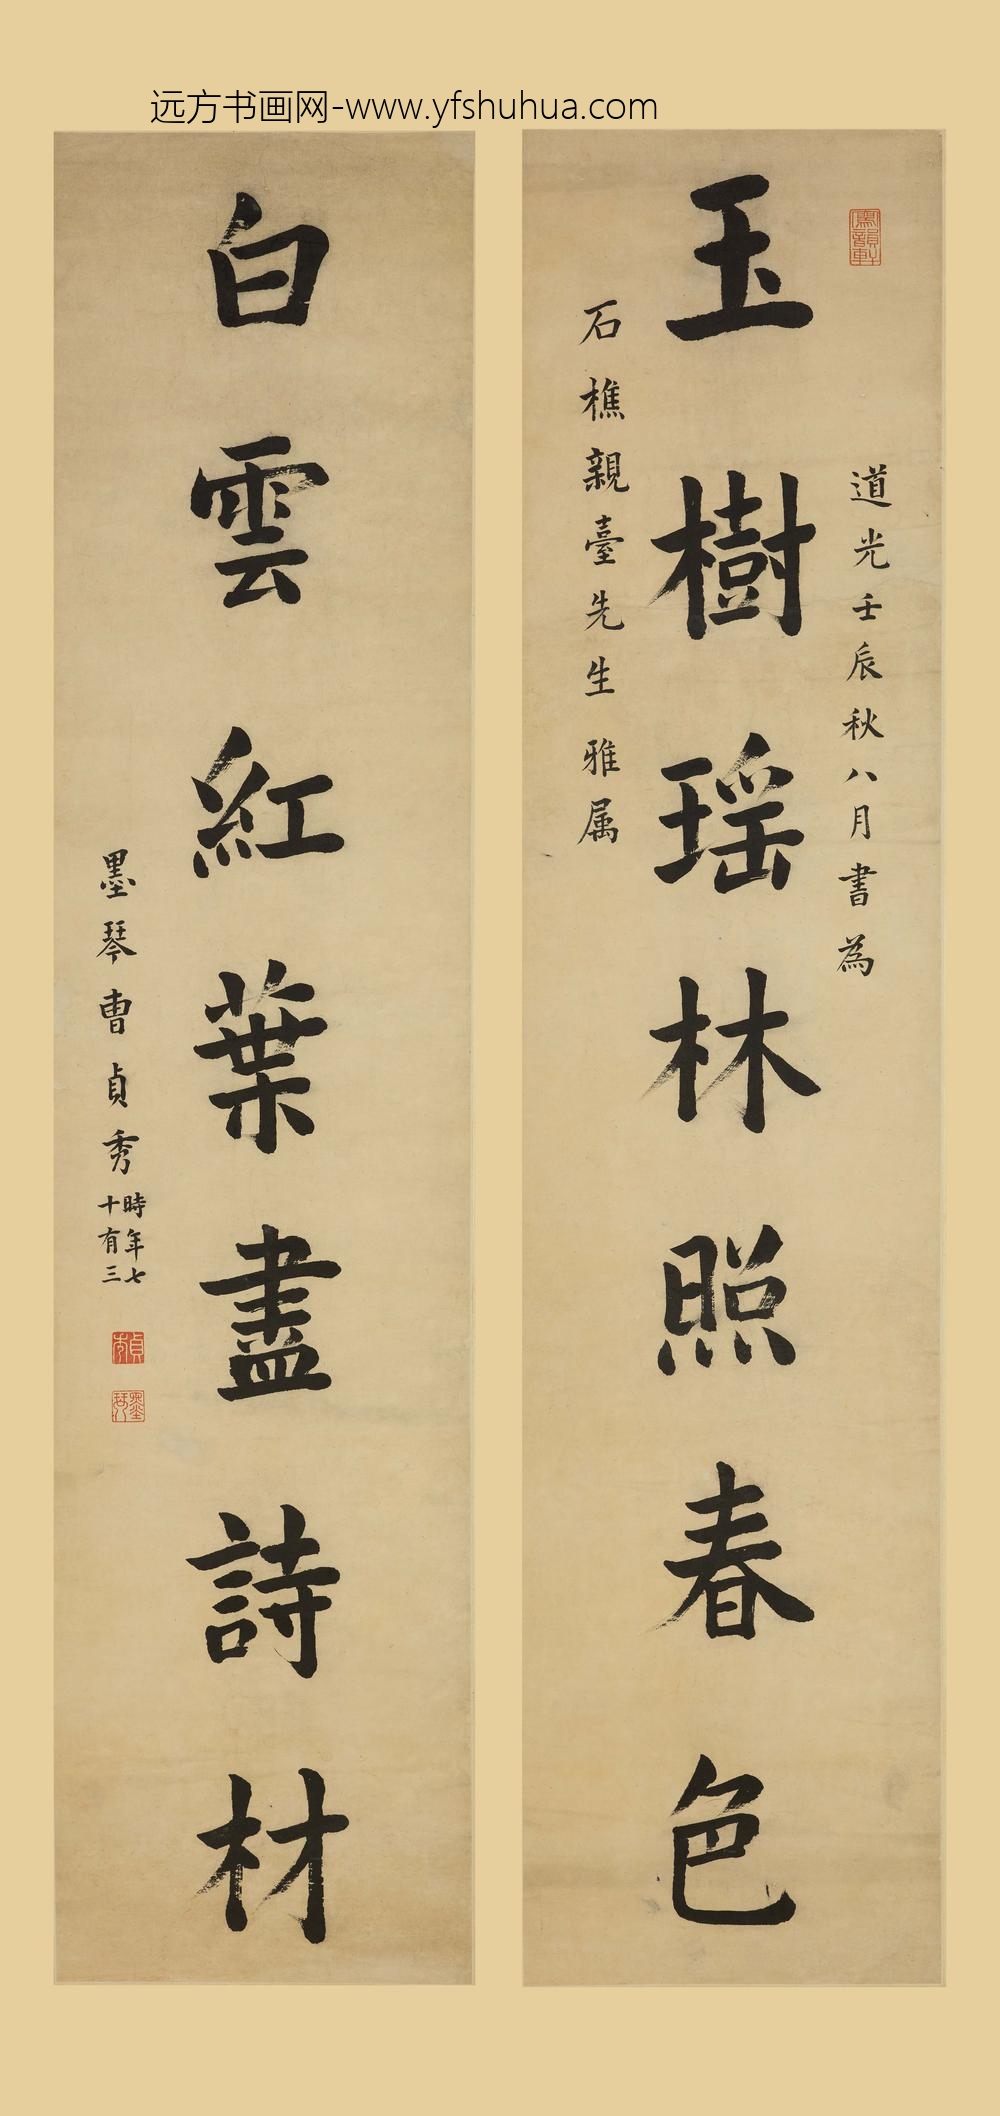 远方书画网-www.yfshuhua.com
道光壬辰秋八月書為
玉樹瑶林照春色
石樵親臺先生雅属
白雲紅葉盡詩材
墨琴曹貞秀
時年七
十有三
貞秀
墨琴